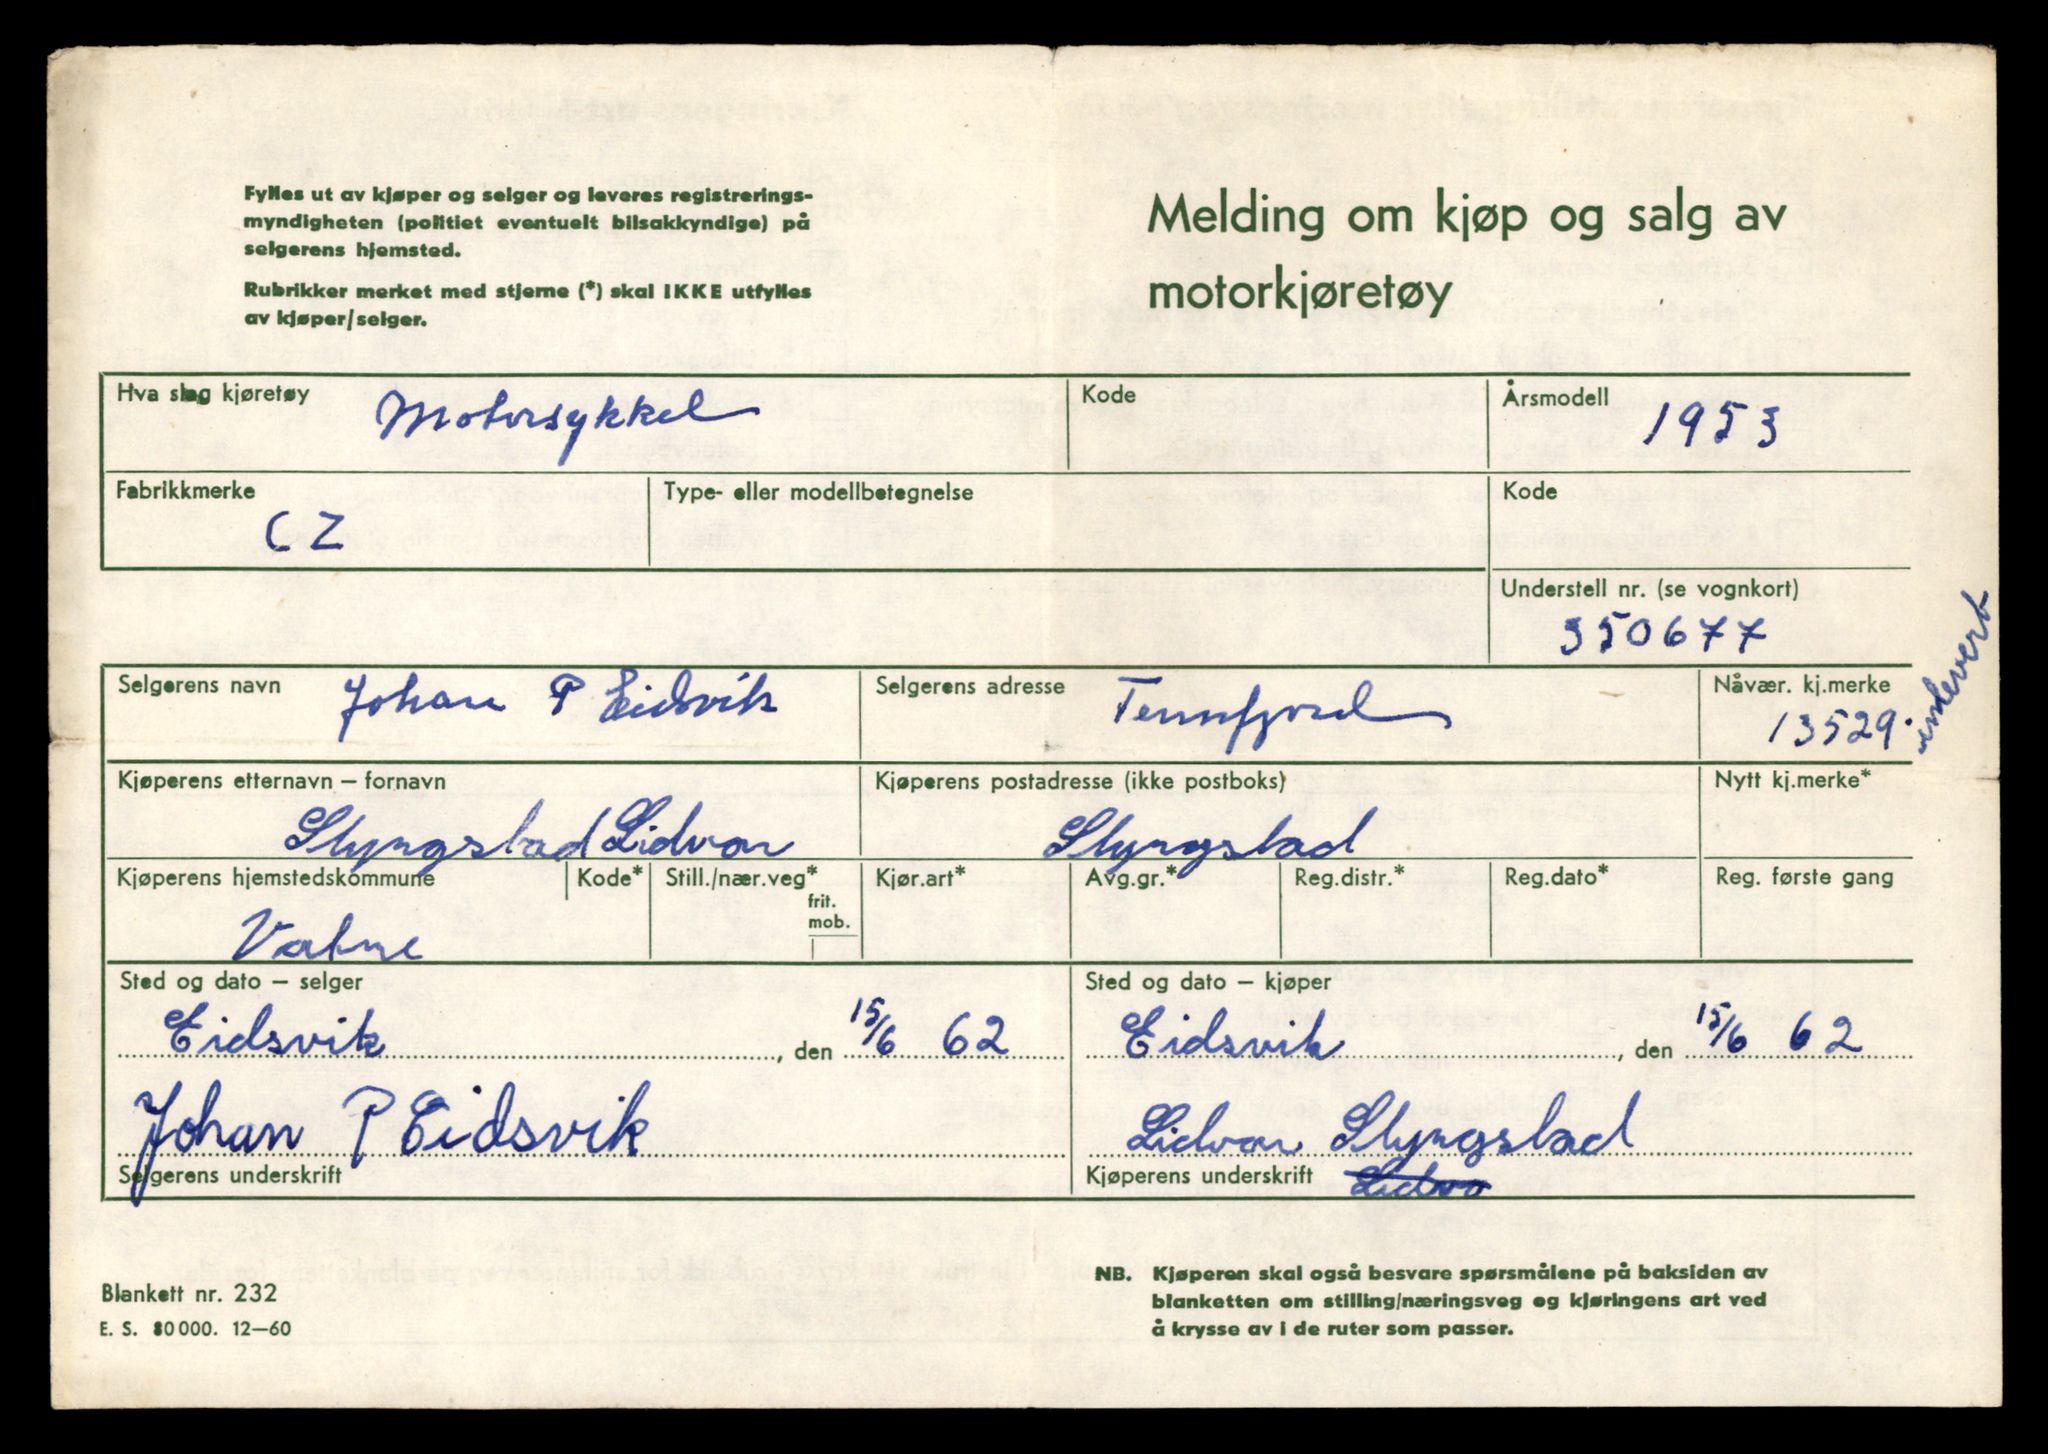 Fylles ut av kjøper og selger og leveres registrerings-
myndigheten (politiet eventuelt bilsakkyndige) på
selgerens hjemsted.
Rubrikker merket med stjerne (*) skal IKKE utfylles
av kjøper/selger.
Melding om kjøp og salg av
motorkjøretøy
Hva slag kjøretøy Motorsykkel Kode Årsmodell 1953
Fabrikkmerke CZ Type- eller modellbetegnelse Kode
Understell nr. (se vognkort)
350677
Selgerens navn Johan P Eidsvik Selgerens adresse Tennfjord Nåvær. kj.merke
13529.
innleverb
Kjøperens etternavn – fornavn Kjøperens postadresse (ikke postboks) Nytt kj.merke*
Slyngstad Lidvar Slyngstad
Kjøperens hjemstedskommune Kode* Still./nær.veg* Kjør.art* Avg.gr.* Reg.distr.* Reg.dato* Reg. første gang
frit.
mob.
Vatne
Sted og dato – selger Sted og dato – kjøper
Eidsvik , den 15/6 62 Eidsvik , den 15/6 62
Johan P Eidsvik Lidvar Slyngstad
Selgerens underskrift Kjøperens underskrift Lidva
Blankett nr. 232
E. S. 80 000. 12—60
NB. Kjøperen skal også besvare spørsmålene på baksiden av
blanketten om stilling/næringsveg og kjøringens art ved
å krysse av i de ruter som passer.